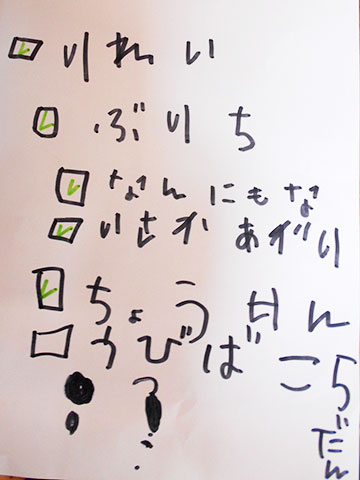 りれい
ぶりち
なんにもな
いさかあがり
ちょうせん
とびばこ5
だん